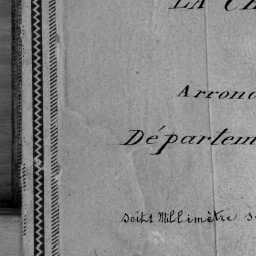 LA C
Arrond
Départem
soit 1 Millimètre